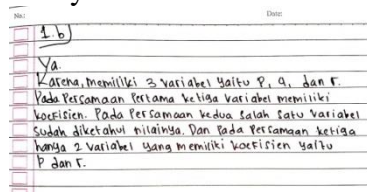 No.:
Date:
1.b)
Ya.
Karena, memiliki 3 variabel yaitu P, q, dan r.
Pada Persamaan Pertama ketiga variabel memiliki
koefisien. Pada Persamaan kedua salah satu variabel
sudah diketahui nilainya. Dan Pada Persamaan ketiga
hanya 2 variabel yang memiliki koefisien yaitu
P dan r.